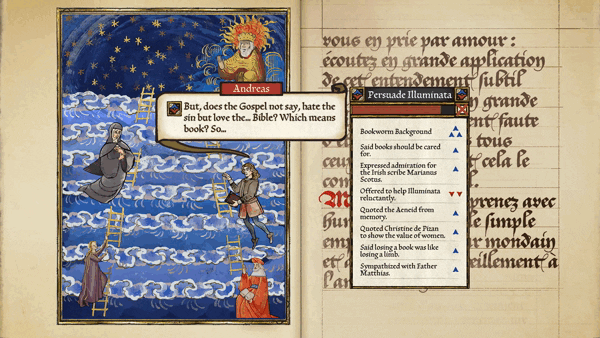 Andreas
But, does the Gospel not say, hate the
sin but love the... Bible? Which means
book? So...
Persuade Illuminata
Bookworm Background
Said books should be cared
for.
Expressed admiration for
the Irish scribe Marianus
Scotus.
Offered to help Illuminata
reluctantly.
Quoted the Aeneid from
memory.
Quoted Christine de Pizan
to show the value of women.
Said losing a book was like
losing a limb.
Sympathized with Father
Matthias.
vous en prie par amour :
écoutez en grande application
de cet entendement subtil
grande
faute
tous
cela le
prenez avec
simple
mondain
et